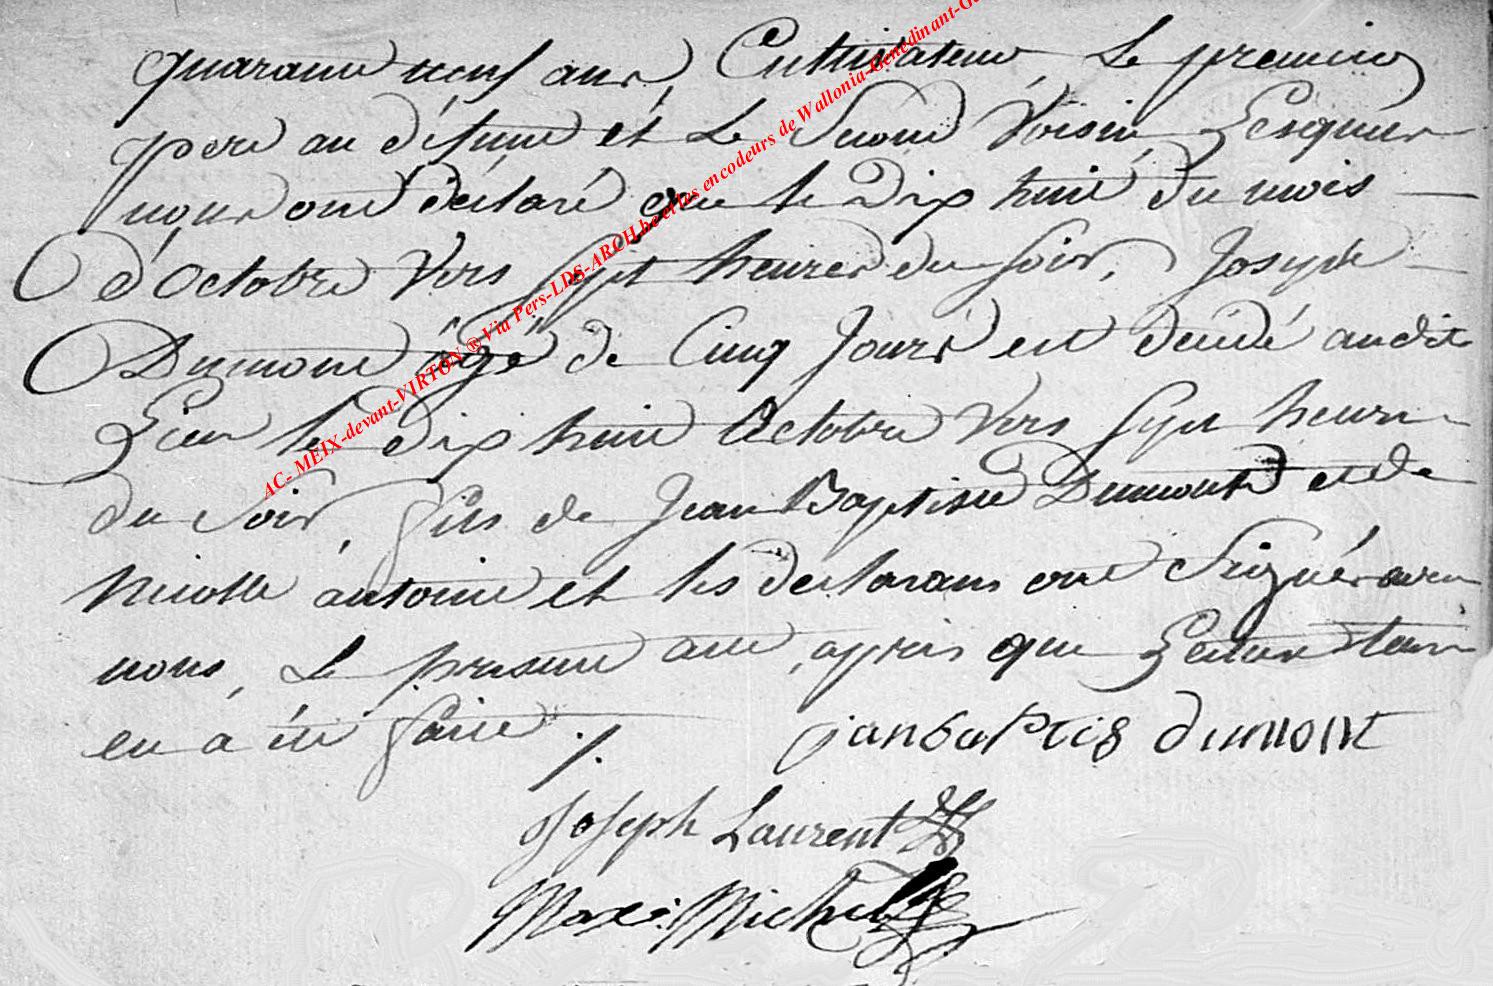 quarante neuf ans, Cultivateur, Le premier
pere au défunt et Le Second Voisin, Lesquels
nous ont déclaré que le Dix huit du mois
d'Octobre Vers Sept heures du Soir, Joseph
Dumont âgé de Cinq Jours est decédé audit
Lieu le dix huit Octobre Vers Sept heures
du Soir, fils de Jean Baptiste Dumont et de
Nicolle antoine et les declarans ont Signés avec
nous, Le present acte, apres que Lecture leur
en a été faite ./.
janbaptis dumont
Joseph Laurent
Max: Michel
AC- MEIX-devant-VIRTON ® Via Pers-LDS-ARCH.be et les encodeurs de Wallonia-Genedinant-Ge